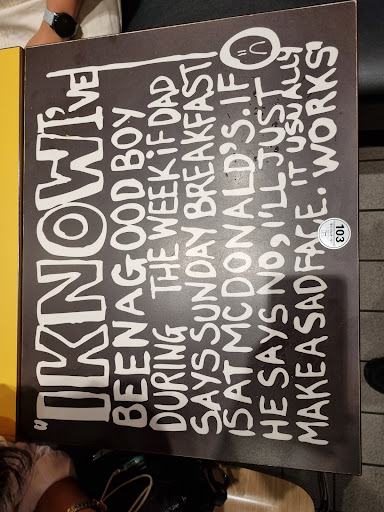 "I KNOW I'VE
BEEN A GOOD BOY
DURING THE WEEK IF DAD
SAYS SUNDAY BREAKFAST
IS AT MCDONALD'S. IF
HE SAYS NO, I'LL JUST
MAKE A SAD FACE. IT USUALLY
WORKS"
103